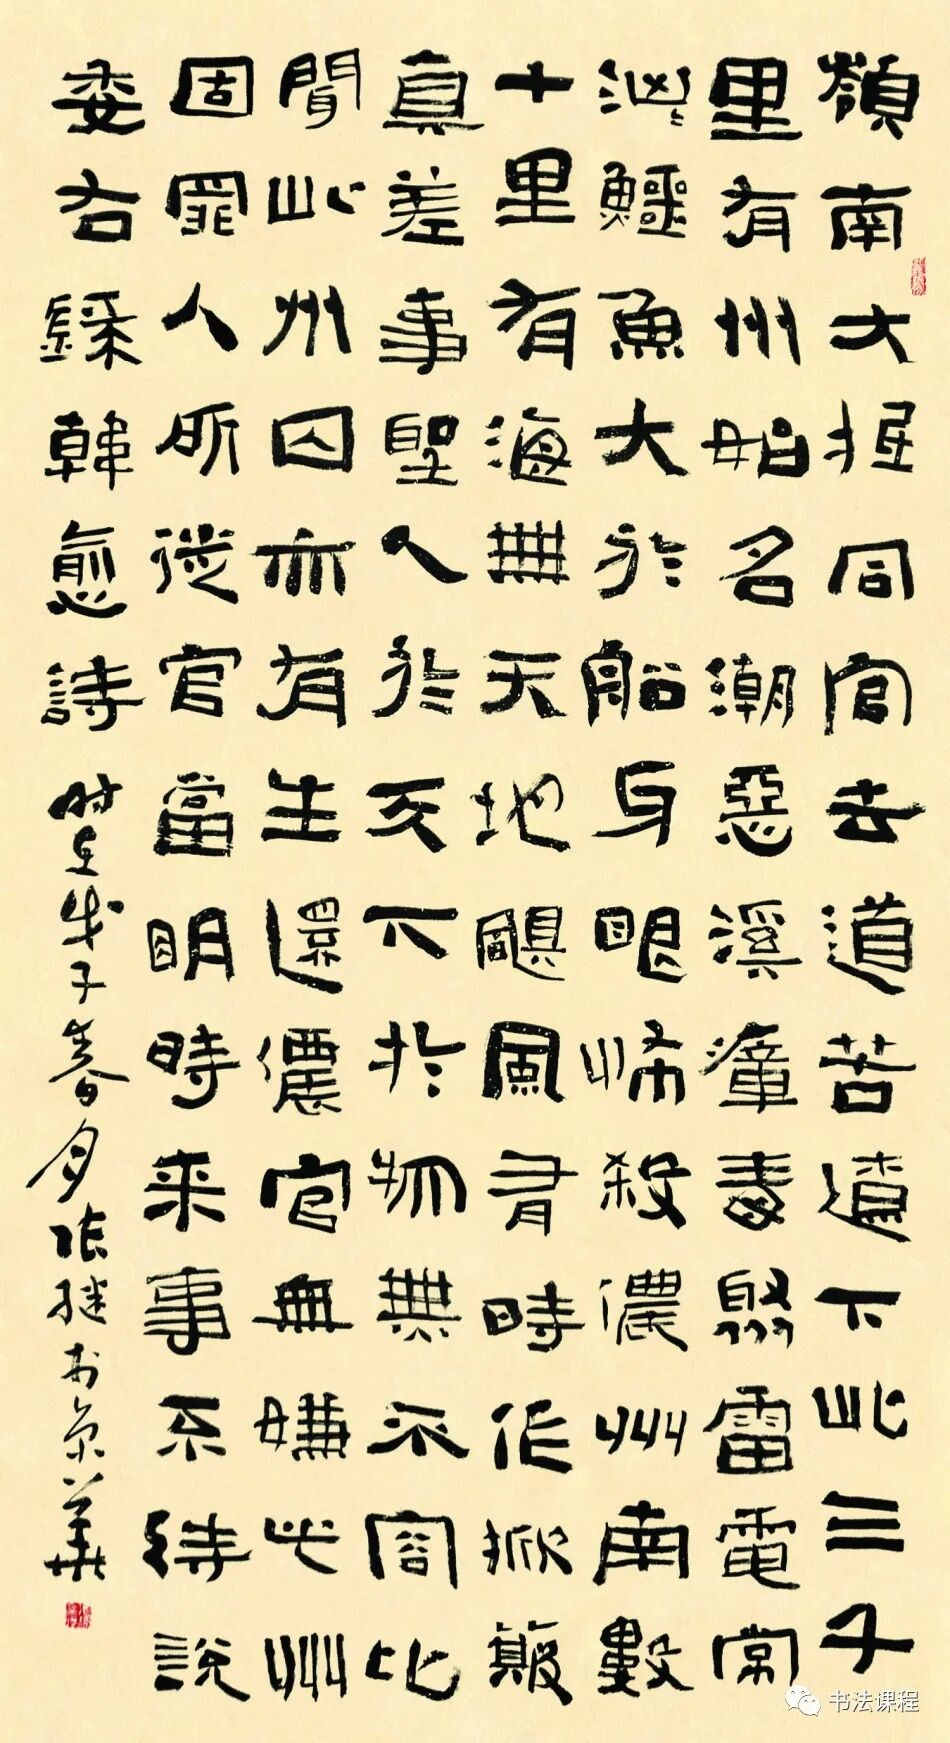 嶺南大抵同官去道苦遼下此三千
里有州始名潮惡溪瘴毒聚雷電常
洶〻鱷魚大於船牙眼怖殺儂州南數
十里有海無天地颶風有時作掀簸
真差事聖人於天下於物無不容比
聞此州囚亦有生還儂官無嫌此州
固罪人所徙官當明時来事不待說
委右録韓愈詩
时在戊子春月张继於京華
书法课程